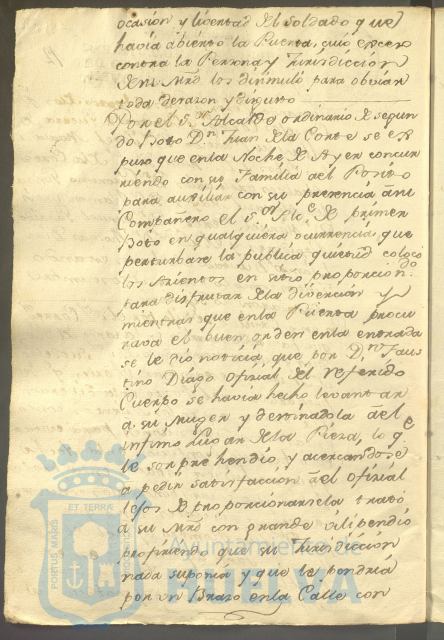 ocasion y livertad del Soldado que
havia abierto la Puerta, cuio exceso
contra la Persona y Jurisdiccion
de su Mrd los disimuló para obviar
toda desazon y disgusto
Por el Sor. Alcalde ordinario de segun
do Voto Dn. Juan de la Corte se ex
puso que en la Noche de Ayer concur
riendo con su Familia al Posito
para auxiliar con su presencia a su
Compañero el Sor Alce. de primer
Voto en qualquiera ocurrencia que
perturbase la publica quietud colocó
los Asientos en sitio proporcion
para disfrutar de la diversion y
mientras que en la Puerta procu
rava el buen orden en la entrada
se le dió noticia que por Dn. Faus
tino Diago oficial del referido
Cuerpo se havia hecho levantar
a su Muger y destinadola al
infimo lugar de la Pieza, lo qe
le sorprehendio, y acercandose
a pedir satisfaccion al oficial
lejos de proporcionarsela trató
a su Mrd con grande vilipendio
profiriendo que su Jurisdiccion
nada suponia y que le pondria
por un Brazo en la Calle con
PORTUS MARIS
ET TERRÆ
CUSTODIA
Ayuntamiento de
HUELVA